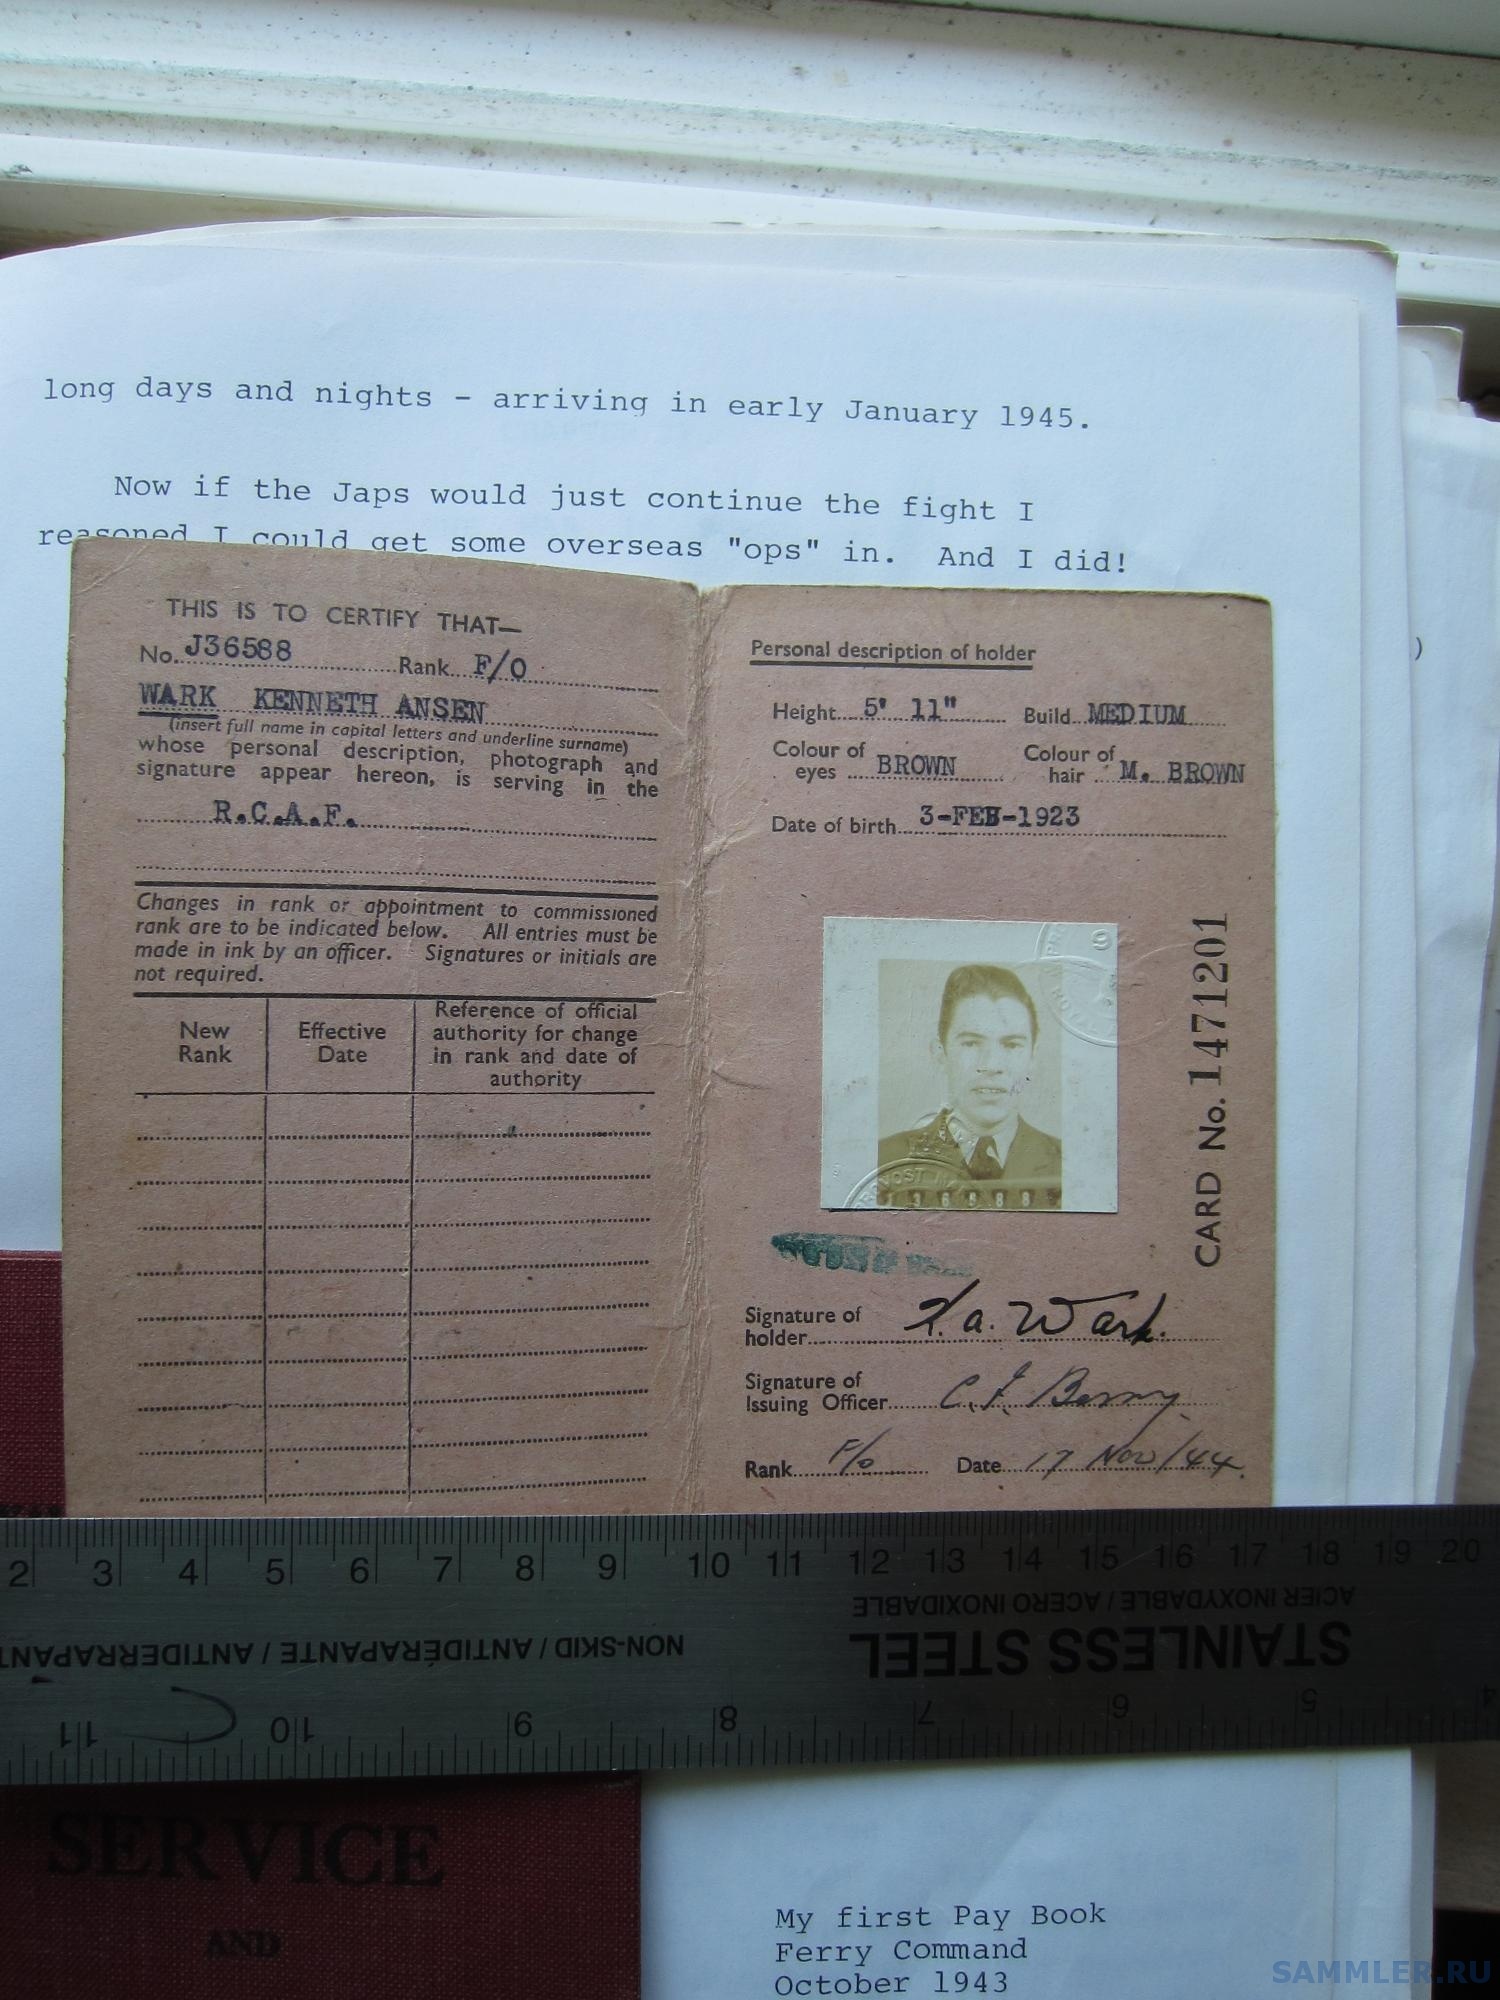 long days and nights - arriving in early January 1945.
Now if the Japs would just continue the fight I
reasoned I could get some overseas "ops" in. And I did!
)
THIS IS TO CERTIFY THAT—
No. J36588 Rank F/O
WARK KENNETH ANSEN
(insert full name in capital letters and underline surname)
whose personal description, photograph and
signature appear hereon, is serving in the
R.C.A.F.
Changes in rank or appointment to commissioned
rank are to be indicated below. All entries must be
made in ink by an officer. Signatures or initials are
not required.
New Rank
Effective Date
Reference of official authority for change in rank and date of authority
Personal description of holder
Height 5' 11" Build MEDIUM
Colour of eyes BROWN Colour of hair M. BROWN
Date of birth 3-FEB-1923
CARD No. 1471201
Signature of holder K. A. Wark.
Signature of Issuing Officer C. F. Berry
Rank F/O Date 17 Nov/44.
2 3 4 5 6 7 8 9 10 11 12 13 14 15 16 17 18 19 20
ACIER INOXYDABLE / ACERO INOXIDABLE
STAINLESS STEEL
NON-SKID / ANTIDÉRAPANTE / ANTIDERRAPANT
11 10 9 8 7 6 5 4
SERVICE
AND
My first Pay Book
Ferry Command
October 1943
SAMMLER.RU